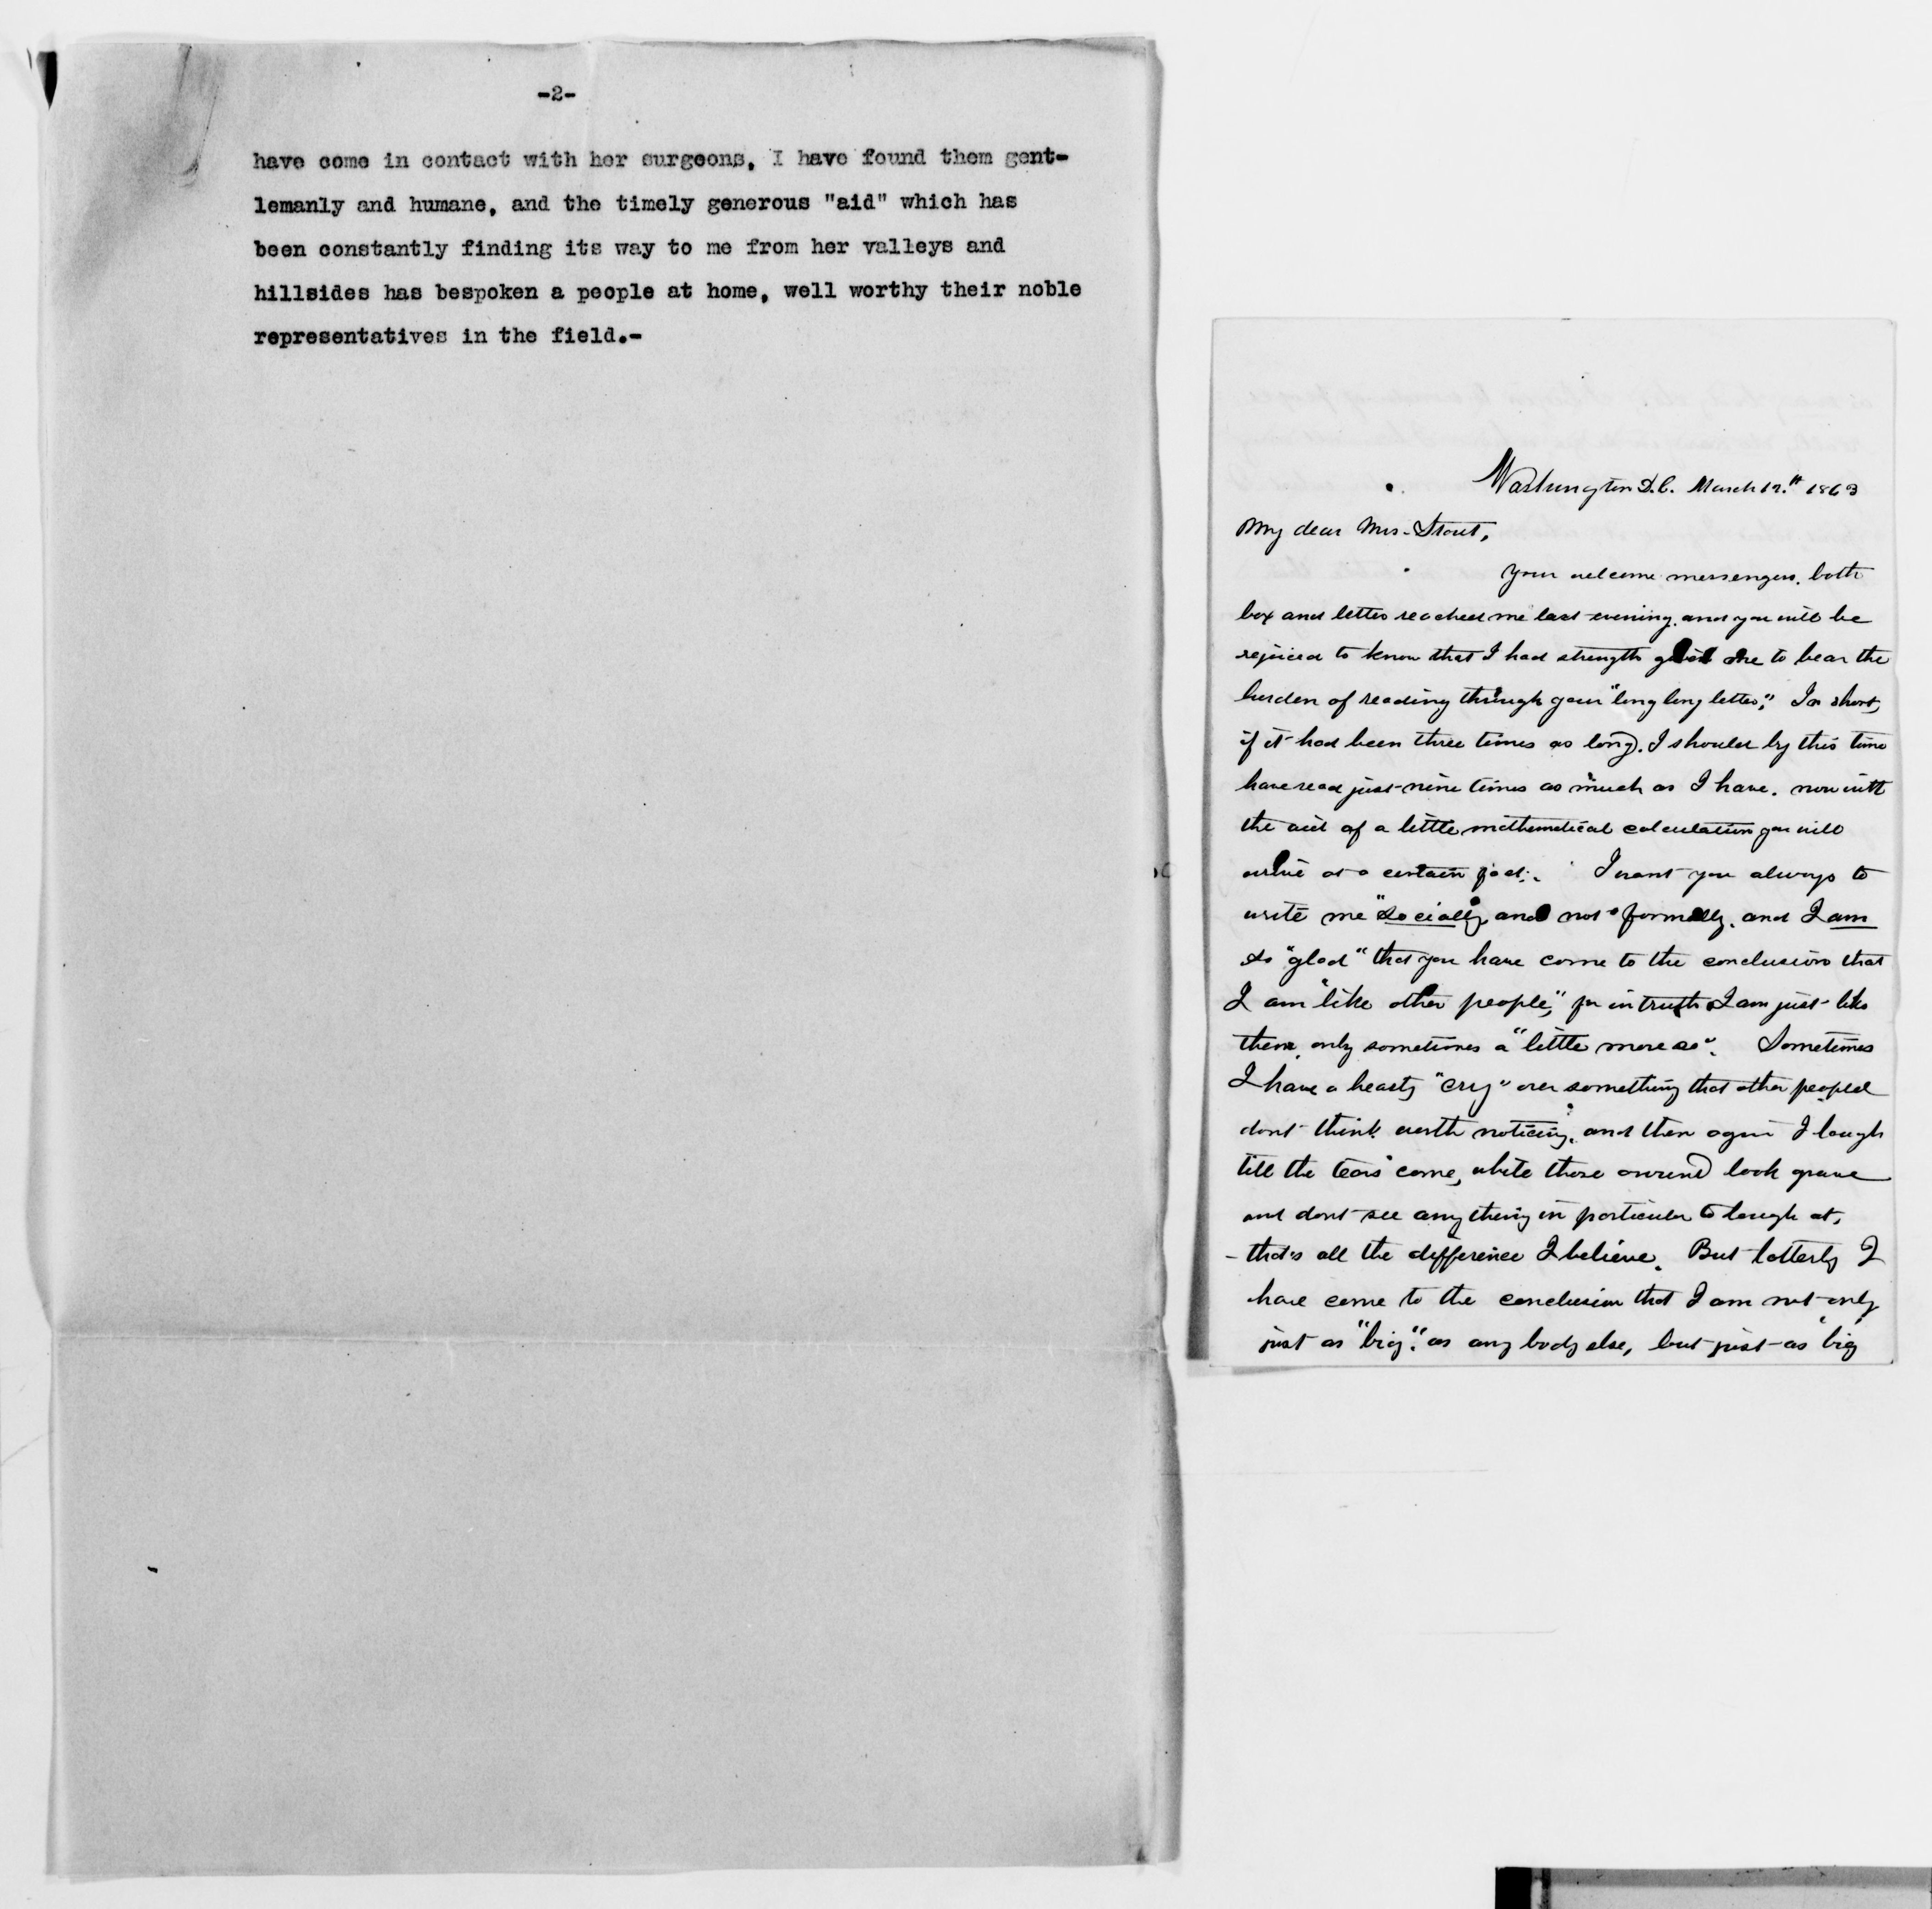 -2-
have come in contact with her surgeons, I have found them gent-
lemanly and humane, and the timely generous "aid" which has
been constantly finding its way to me from her valleys and
hillsides has bespoken a people at home, well worthy their noble
representatives in the field.-
Washington D.C. March 12.th 1863
My dear Mrs. Stout,
Your welcome messengers. both
box and letter reached me last evening. and you will be
rejoiced to know that I had strength given me to bear the
burden of reading through your "long long letter." In short,
if it had been three times as long. I should by this time
have read just nine times as much as I have. now with
the aid of a little mathematical calculation you will
arrive at a certain fact. I want you always to
write me "socially and not "formally. and I am
so "glad" that you have come to the conclusion that
I am "like other people," for in truth I am just like
them, only sometimes a "little more so". Sometimes
I have a hearty "cry" over something that other people
dont think worth noticing, and then again I laugh
till the tears come, while those around look grave
and dont see any thing in particular to laugh at,
- that's all the difference I believe. But latterly I
have come to the conclusion that I am not only
just as "big" as any body else, but just as "big